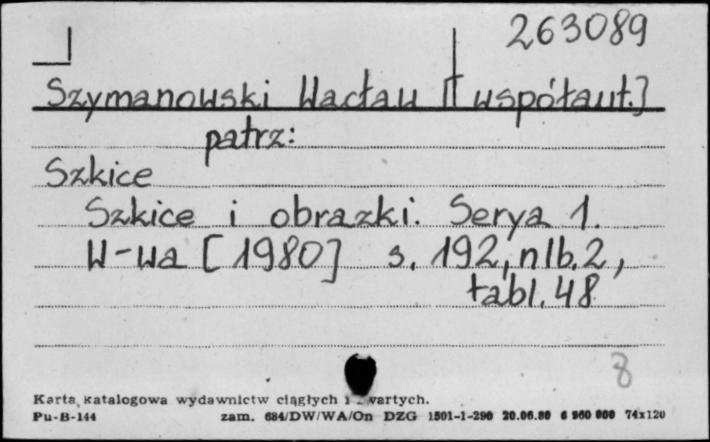 263089
Szymanowski Wacław [i współaut.]
patrz:
Szkice
Szkice i obrazki. Serya 1.
W-wa [1980] s. 192, nlb. 2,
tabl. 48
8
Karta katalogowa wydawnictw ciągłych i zwartych.
Pu-B-144 zam. 684/DW/WA/On DZG 1501-1-290 20.06.80 6 960 000 74x120